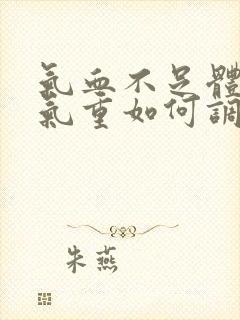 氣血不足體
氣重如何調
朱燕